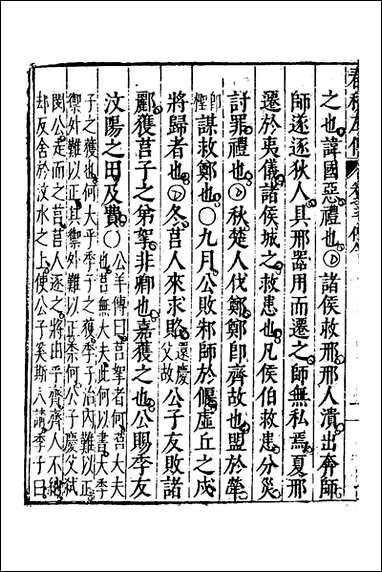 之也諱國惡禮也〇諸侯救邢邢人潰出奔師
師遂逐狄人具邢器用而遷之師無私焉夏邢
遷於夷儀諸侯城之救患也凡侯伯救患分災
討罪禮也〇秋楚人伐鄭鄭即齊故也盟於犖
即檉謀救鄭也〇九月公敗邾師於偃虛丘之戍
將歸者也〇冬莒人來求賂還慶父故公子友敗諸
酈獲莒子之弟挐非卿也嘉獲之也公賜季友
汶陽之田及費〇公羊傳曰莒挐者何莒大夫
也莒無大夫此何以書大季
子之獲也何大乎季子之獲季子治內難以正
禦外難以正其禦外難以正奈何公子慶父弒
閔公走而之莒莒人逐之將由乎齊齊人不納
却反舍於汶水之上使公子奚斯入請季子曰